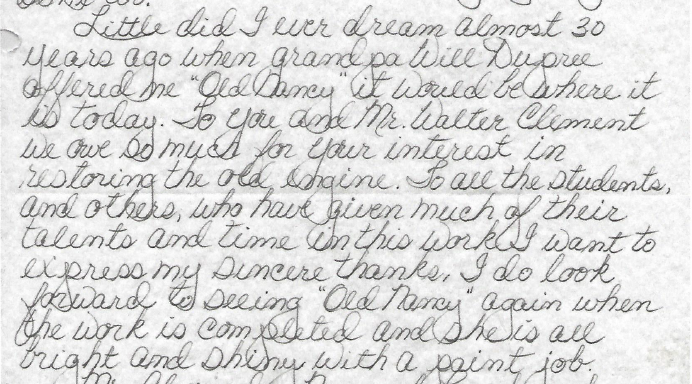 Little did I ever dream almost 30
years ago when grandpa Will Dupree
offered me "Old Nancy" it would be where it
is today. To you and Mr. Walter Clement
we owe so much for your interest in
restoring the old engine. To all the students,
and others, who have given much of their
talents and time in this work I want to
express my sincere thanks. I do look
forward to seeing "Old Nancy" again when
the work is completed and she is all
bright and shiny with a paint job.